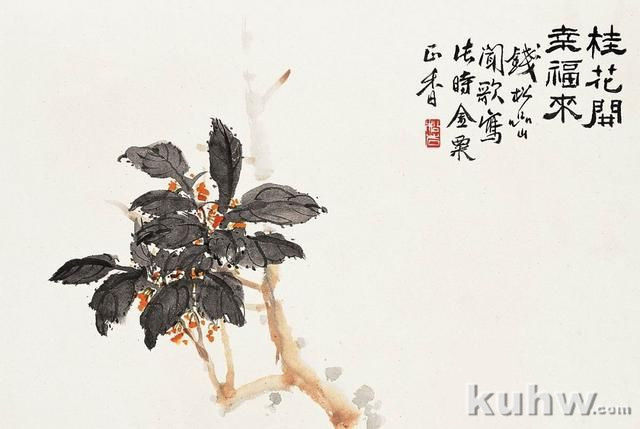 桂花開
幸福來
錢松嵒
聞歌寫
此時金粟
正香
kuhw.com